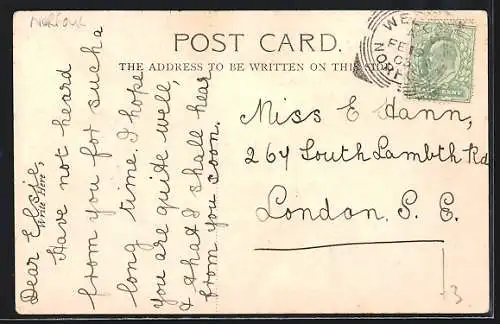 Norfolk
POST CARD.
THE ADDRESS TO BE WRITTEN ON THIS SIDE
WE
FE
NORF
Miss E Hann,
267 South Lambth Rd
London. S. E.
Dear Elsie,
Write Here
Have not heard
from you for such a
long time. I hope
you are quite well,
& that I shall hear
from you soon.
3